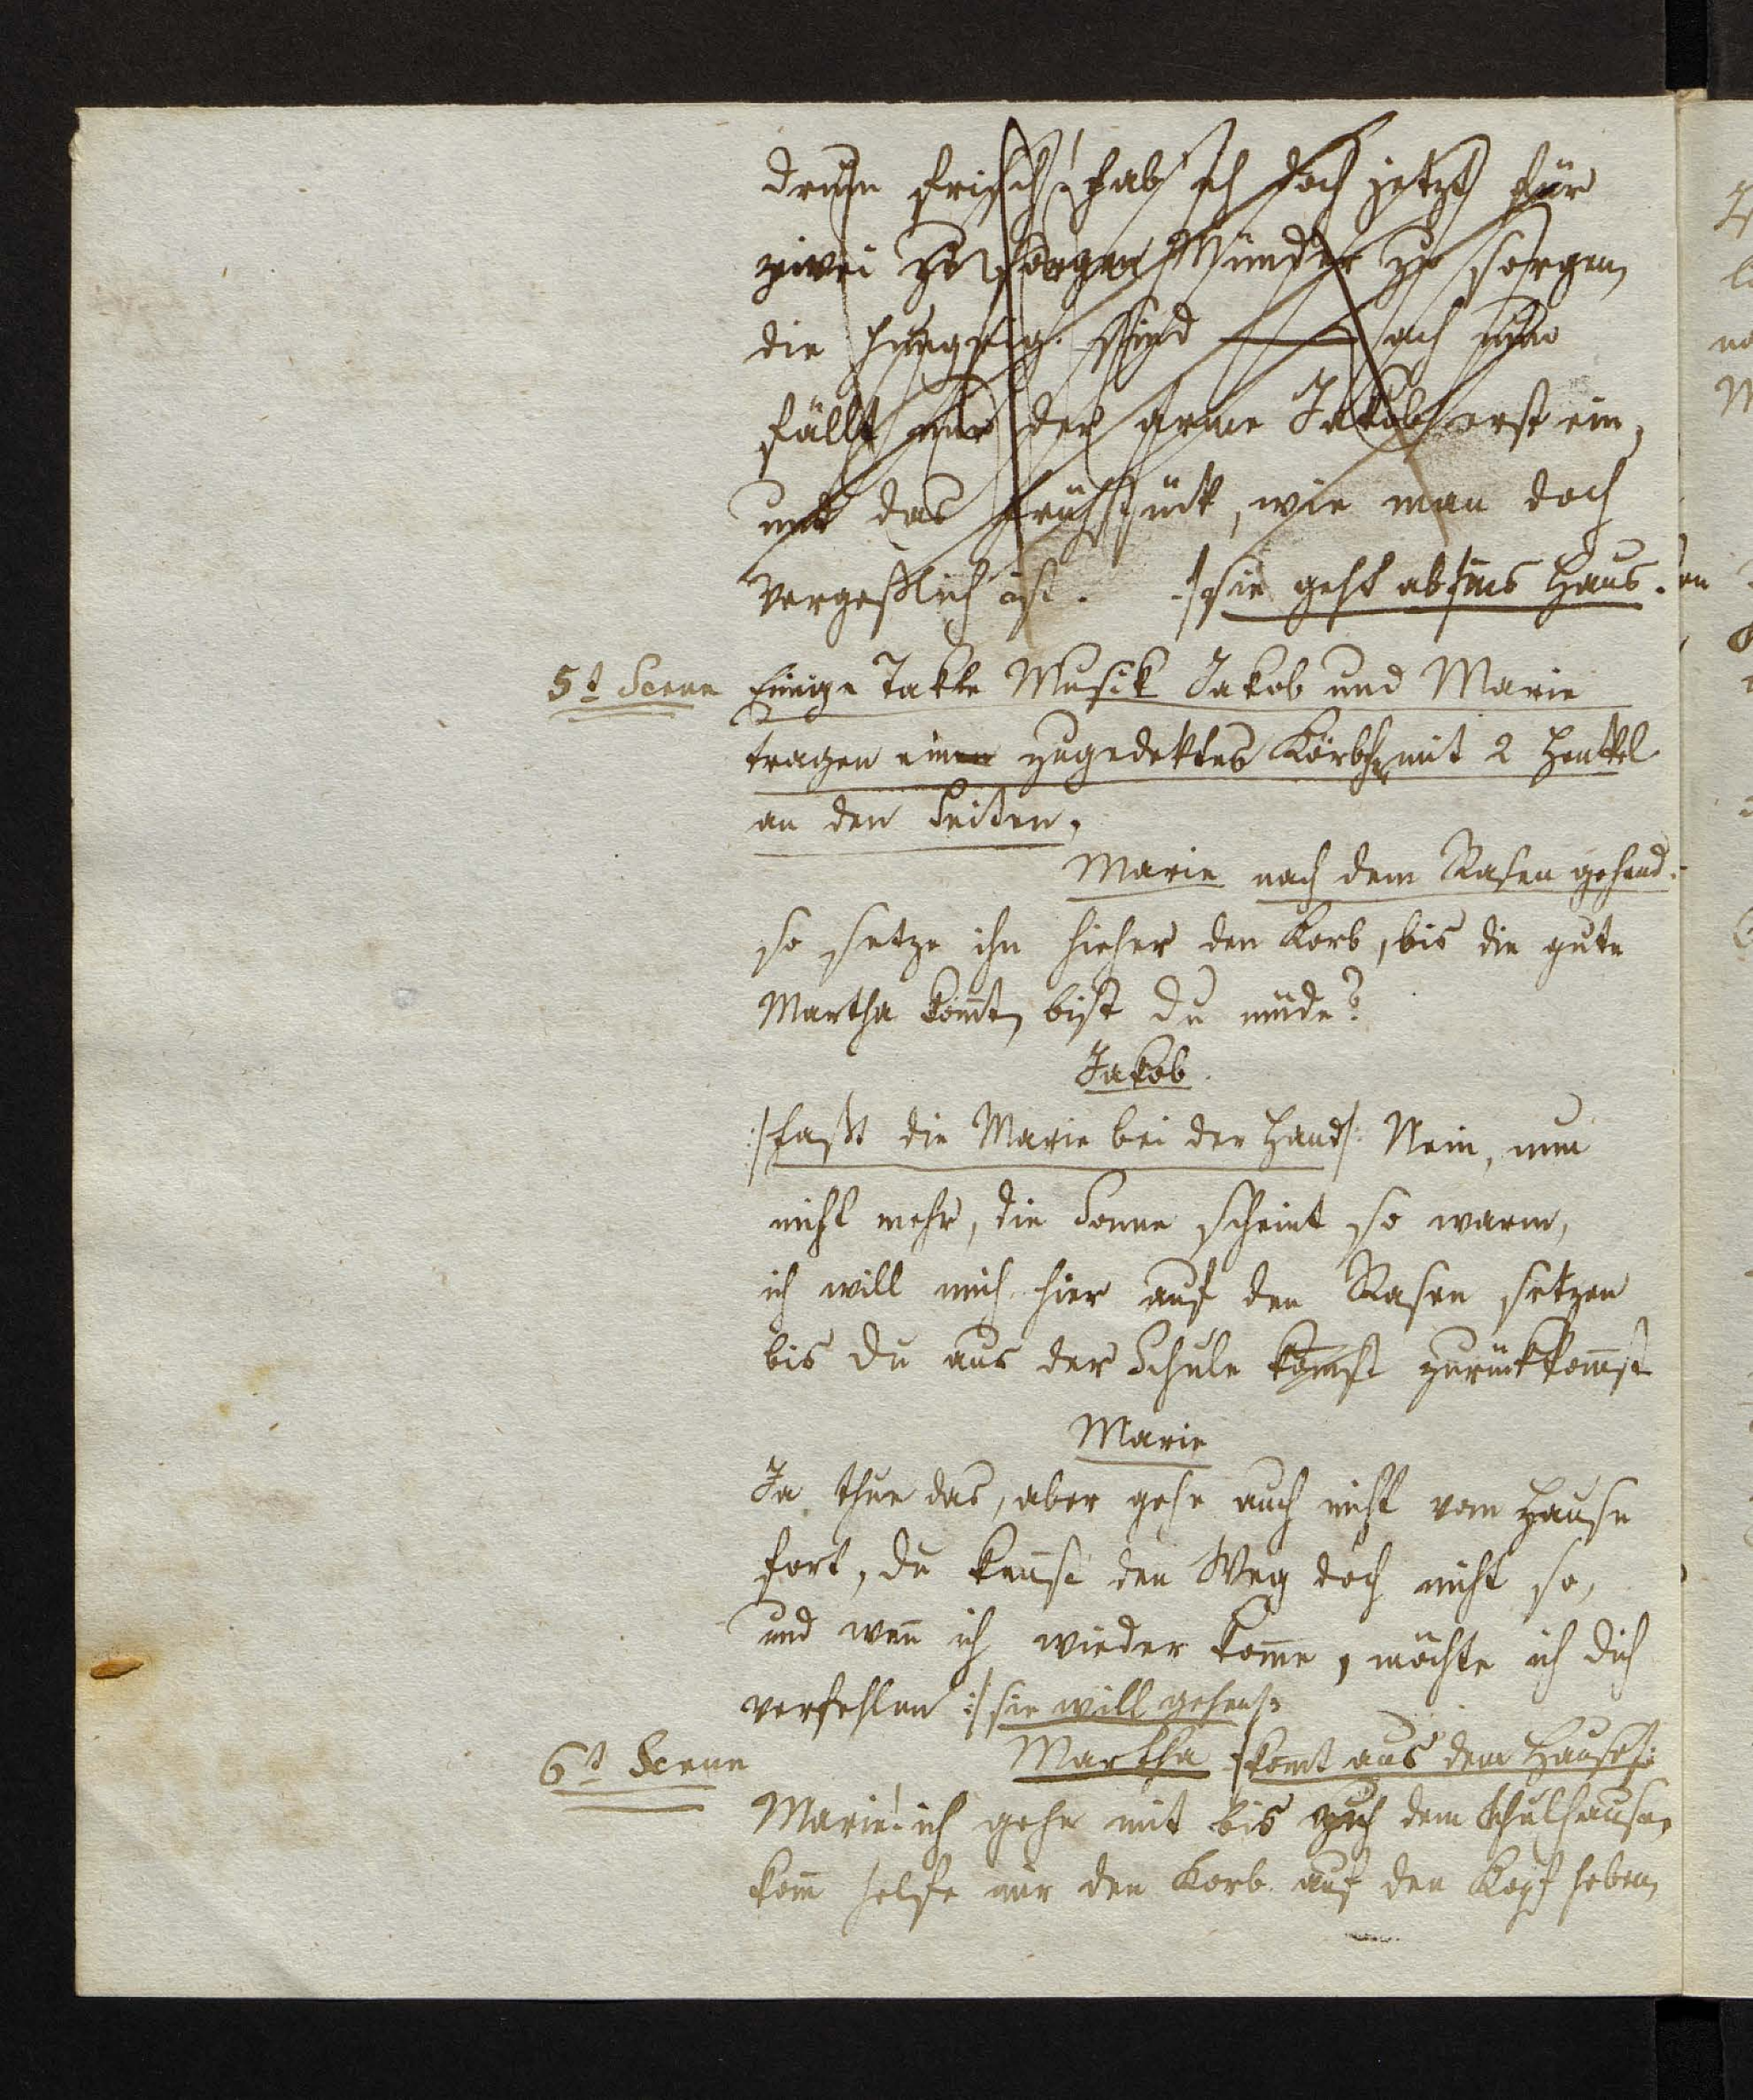 drum frisch! hab ich doch jetzt für
zwei zu sorgen Münder zu sorgen,
die hungrig sind — ach nun
fällt mir der arme Jakob erst ein,
und das Frühstück, wie man doch
vergeßlich ist. :/sie geht ab ins Haus.
5t Scene Einige Takte Musik Jakob und Marie
tragen einen zugedektes Körbch mit 2 Henkel
an den Seiten,
Marie nach dem Rasen gehend:
so setze ihn hieher den Korb, bis die gute
Martha kom̄t, bist du müde?
Jakob.
:/faßt die Marie bei der Hand/: Nein, nun
nicht mehr, die Sonne scheint so warm,
ich will mich hier auf den Rasen setzen
bis du aus der Schule kom̄st zurückkom̄st
Marie
Ja thue das, aber gehe auch nicht vom Hause
fort, du ken̄st den Weg doch nicht so,
und wen̄ ich wieder kom̄e, möchte ich dich
verfehlen :/sie will gehen/:
6t Scene Martha :/kom̄t aus dem Hause/:
Marie! ich gehe mit bis dem Schulhause,
kom̄ helfe mir den Korb auf den Kopf heben,